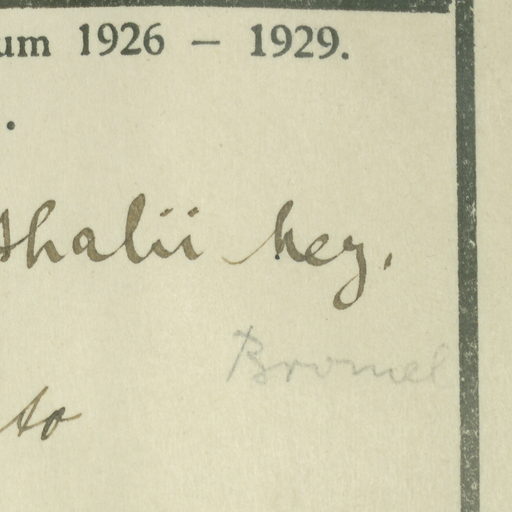 um 1926 – 1929.
.
thalii Mez.
Bromel
to